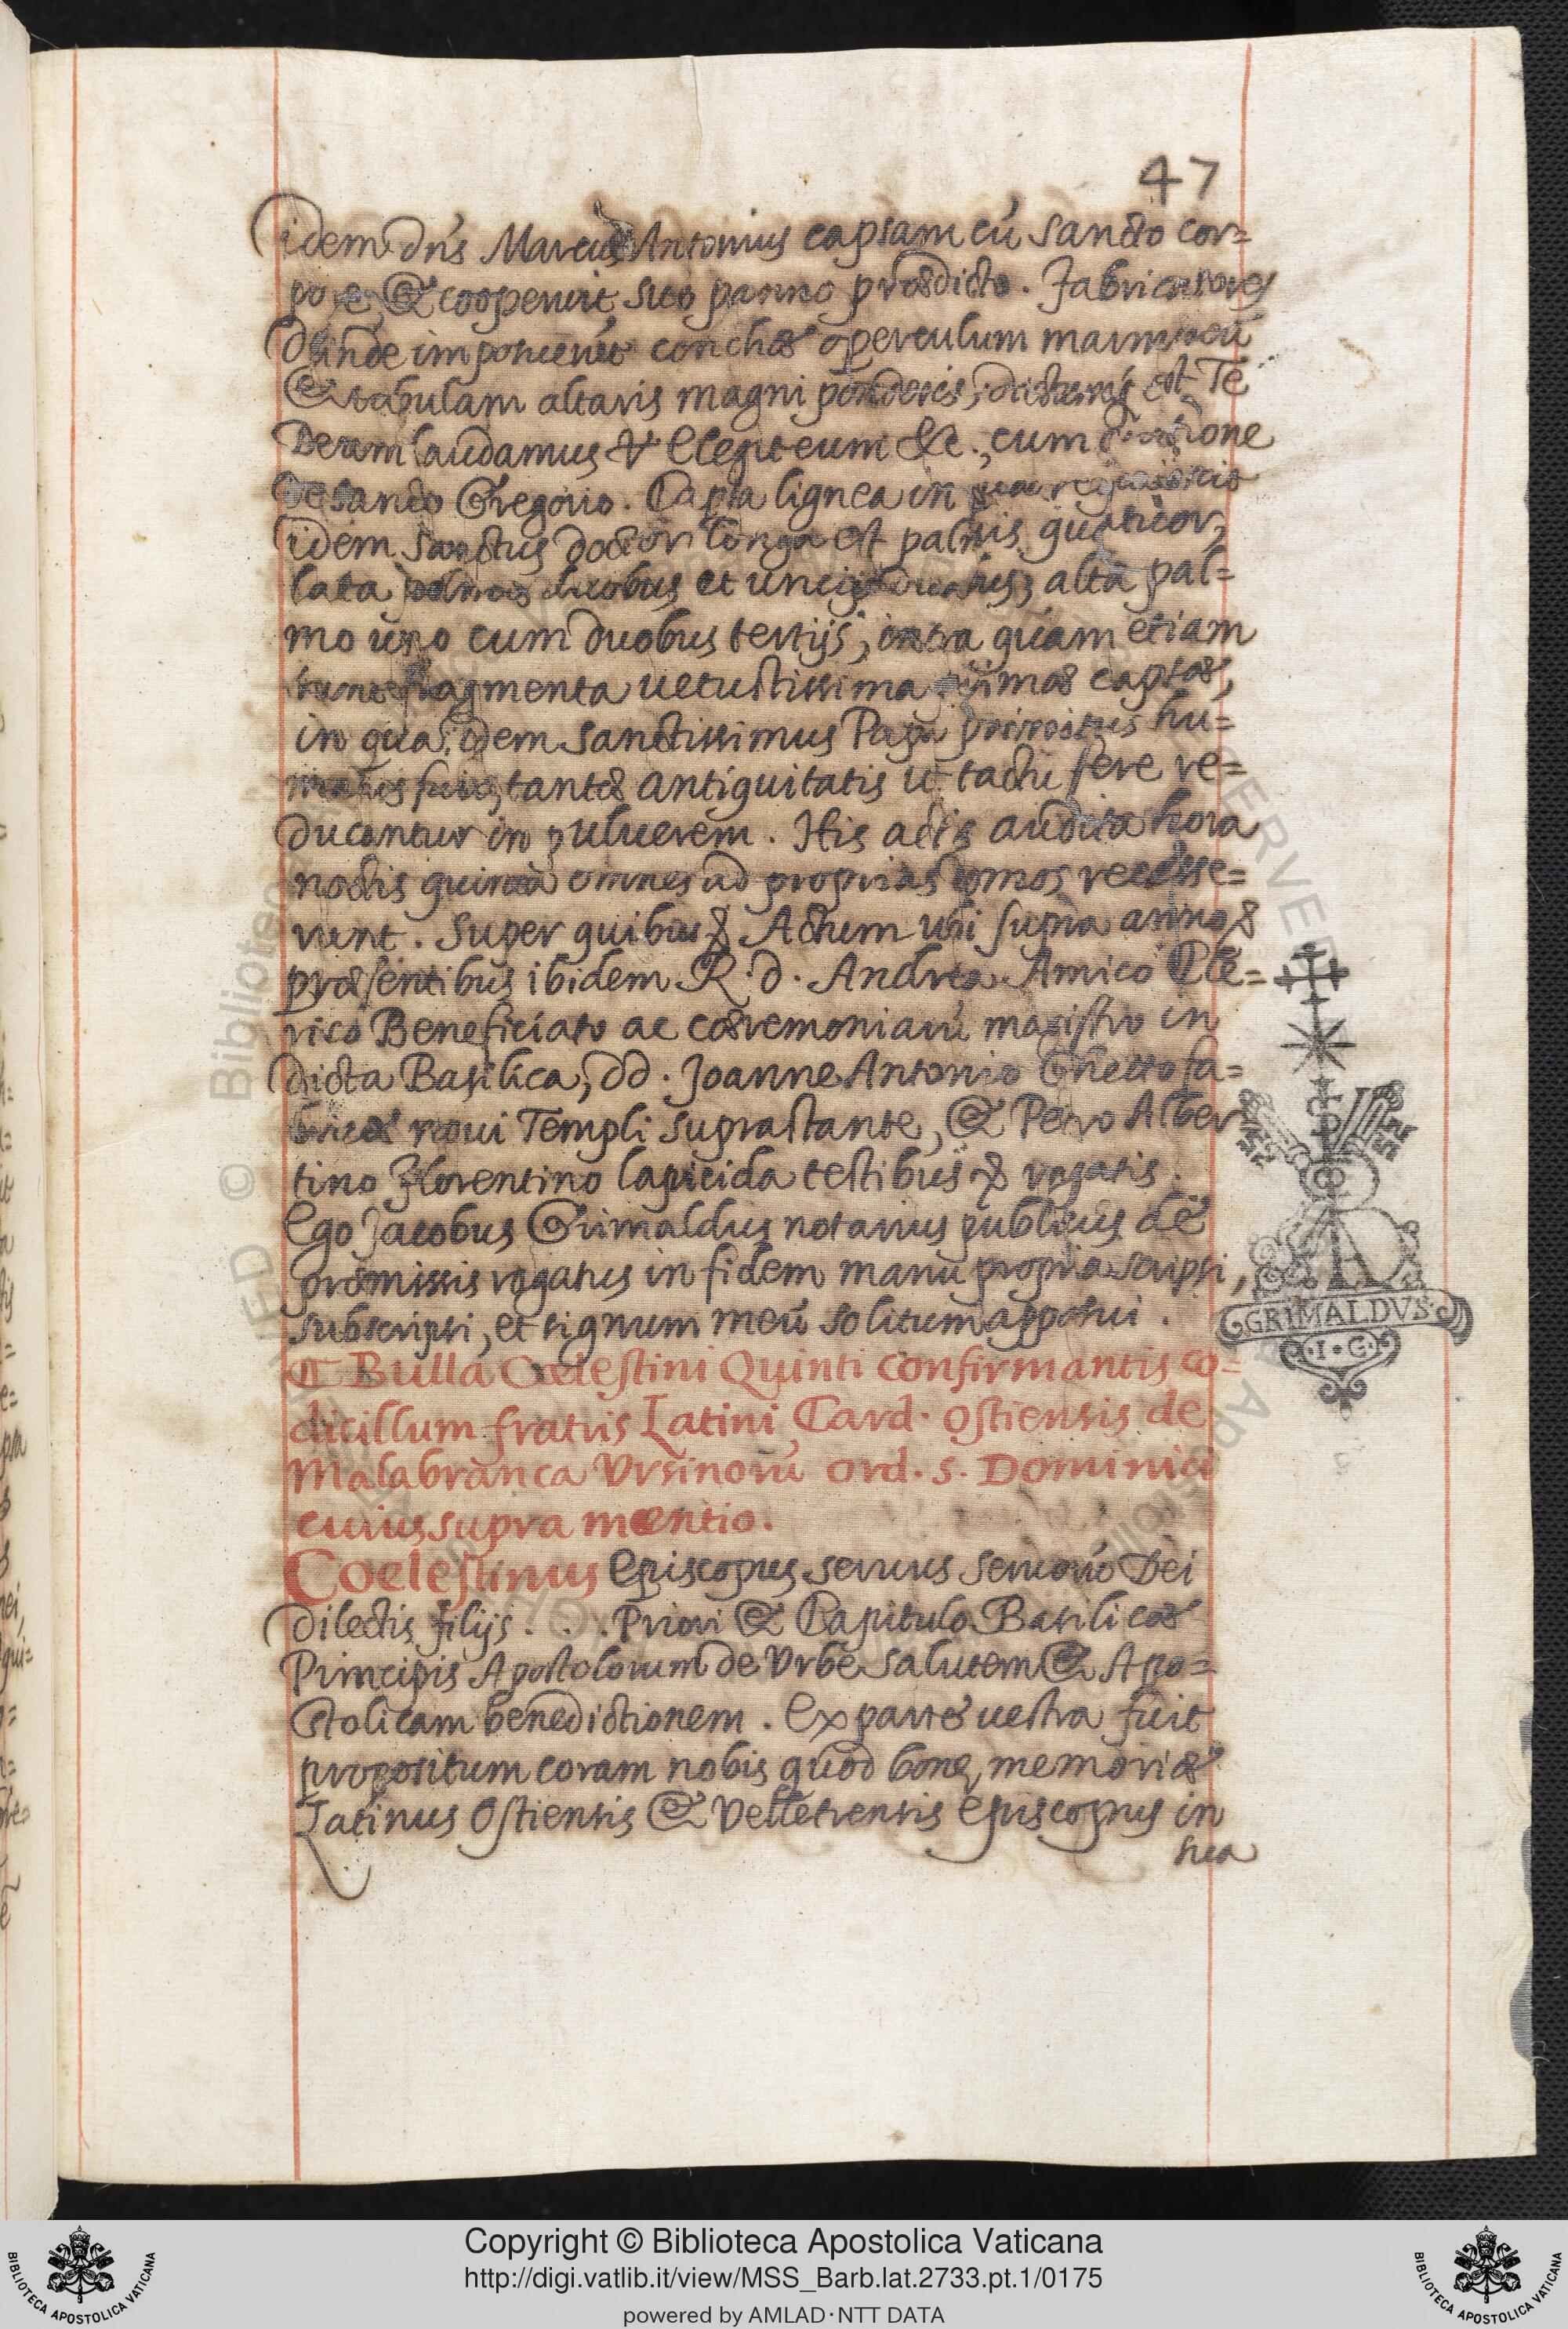 47
idem Dn̄s Marcus Antonius capsam cū sancto cor=
pore, & cooperuit suo panno prædicto. Fabricatores
deinde imposuerūt conchæ operculum marmoreū
& tabulam altaris magni ponderis; dictumq; est Te
Deum laudamus ℣ Elegit eum &c., cum oratione
de sancto Gregorio. Capsa lignea in qua requiescit
idem sanctus doctor longa est palmis quatuor,
lata palmis duobus et uncijs duabus, alta pal=
mo uno cum duobus tertijs; intra quam etiam
sunt fragmenta uetustissima primæ capsæ,
in qua idem sanctissimus Papa primitus hu=
matus fuit, tantæ antiquitatis ut tactu fere re=
ducantur in puluerem. His actis audita hora
noctis quinta omnes ad proprias domos recesse=
runt. Super quibus & Actum ubi supra anno &
præsentibus ibidem R. d. Andrea Amico Cle=
rico Beneficiato ac cæremoniarū magistro in
dicta Basilica, dd. Joanne Antonio Ghetto fa=
bricæ noui Templi suprastante, & Petro Alber
tino Florentino lapicida testibus & rogatis.
Ego Jacobus Grimaldus notarius publicus de
præmissis rogatus in fidem manu propria scripsi,
subscripsi, et signum meū solitum apposui.
GRIMALDVS
·I·G·
¶ Bulla Cœlestini Quinti confirmantis co=
dicillum fratris Latini Card. Ostiensis de
Malabranca Vrsinorū ord. s. Dominici
cuius supra mentio.
Coelestinus Episcopus seruus seruorū Dei
dilectis filijs . . . Priori & Capitulo Basilicæ
Principis Apostolorum de Vrbe salutem & Apo=
stolicam benedictionem. Ex parte uestra fuit
propositum coram nobis quod bonę memoriæ
Latinus Ostiensis & Velletrensis Episcopus in
sua
Copyright © Biblioteca Apostolica Vaticana
http://digi.vatlib.it/view/MSS_Barb.lat.2733.pt.1/0175
powered by AMLAD·NTT DATA
BIBLIOTECA APOSTOLICA VATICANA
BIBLIOTECA APOSTOLICA VATICANA